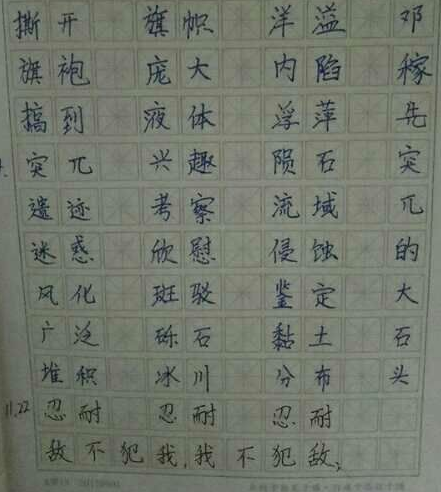 撕开 旗帜 洋溢 邓
旗袍 庞大 内陷 稼
搞到 液体 浮萍 先
突兀 兴趣 陨石 突
遗迹 考察 流域 兀
迷惑 欣慰 侵蚀 的
风化 斑驳 鉴定 大
广泛 砾石 黏土 石
堆积 冰川 分布 头
11.22 忍耐 忍耐 忍耐
敌不犯我,我不犯敌;